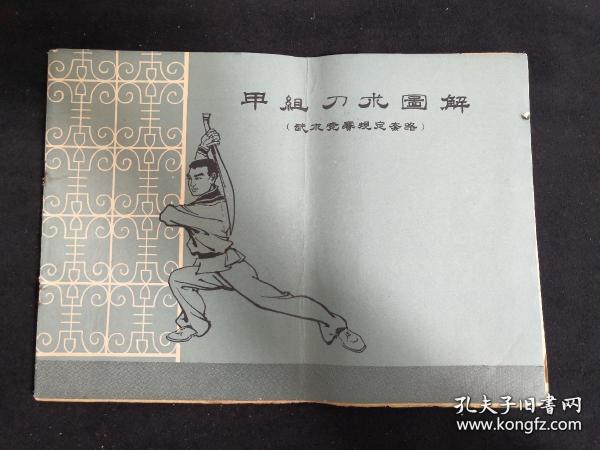 甲组刀术圖解
(武术竞赛规定套路)
孔夫子旧書网
www.kongfz.com